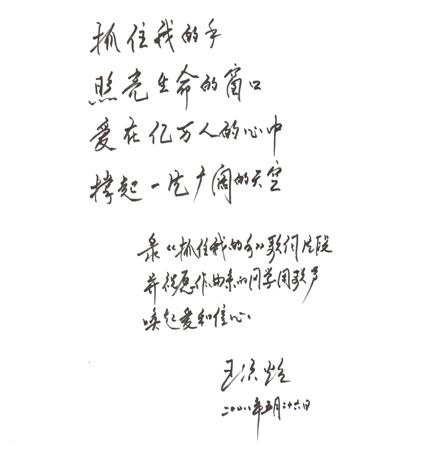 抓住我的手
照亮生命的窗口
爱在亿万人的心中
撑起一片广阔的天空
录《抓住我的手》歌词片段
并祝愿作曲系的同学用歌声
唤起爱和信心。
二〇〇八年五月二十六日